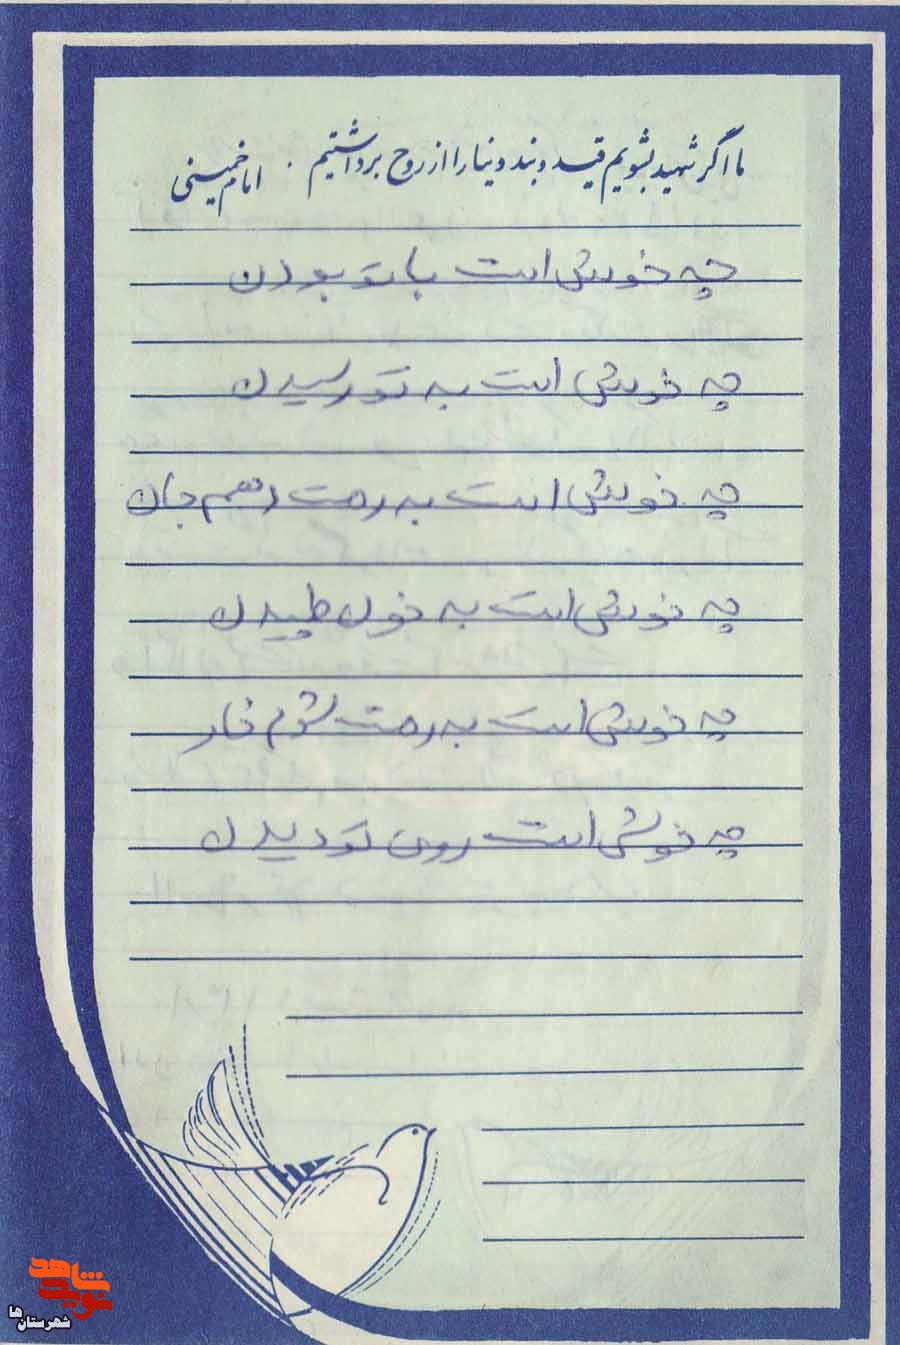 ما اگر شهید بشویم قید و بند دنیا را از روح برداشتیم . امام خمینی
چه خوش است با تو بودن
چه خوش است به تو رسیدن
چه خوش است به رهت دهم جان
چه خوش است به خون طپیدن
چه خوش است به رهت شوم خار
چه خوش است روی تو دیدن
نوید شاهد
شهرستان ها